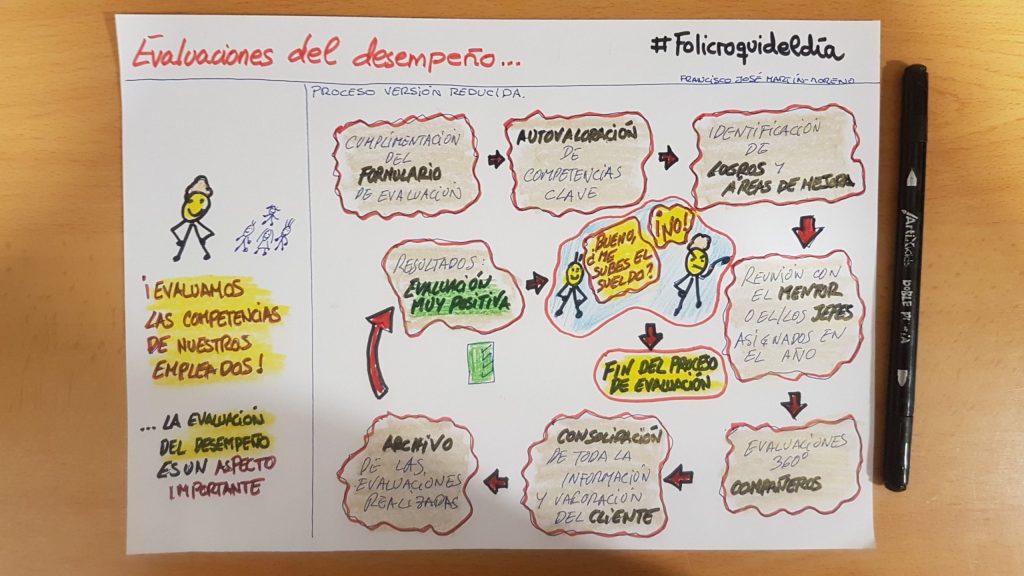 Evaluaciones del desempeño...
#Folicroquideldía
FRANCISCO JOSÉ MARTÍN-MORENO
PROCESO VERSIÓN REDUCIDA.
¡EVALUAMOS
LAS COMPETENCIAS
DE NUESTROS
EMPLEADOS!
... LA EVALUACIÓN
DEL DESEMPEÑO
ES UN ASPECTO
IMPORTANTE
CUMPLIMENTACIÓN
DEL
FORMULARIO
DE EVALUACIÓN
AUTOVALORACIÓN
DE
COMPETENCIAS
CLAVE
IDENTIFICACIÓN
DE
LOGROS Y
ÁREAS DE MEJORA
REUNIÓN CON
EL MENTOR
O EL/LOS JEFES
ASIGNADOS EN
EL AÑO
EVALUACIONES
360º
COMPAÑEROS
CONSOLIDACIÓN
DE TODA LA
INFORMACIÓN
Y VALORACIÓN
DEL CLIENTE
ARCHIVO
DE LAS
EVALUACIONES
REALIZADAS
RESULTADOS:
EVALUACIÓN
MUY POSITIVA
BUENO,
¿ME
SUBES EL
SUELDO?
¡NO!
FIN DEL PROCESO
DE EVALUACIÓN
Artificios